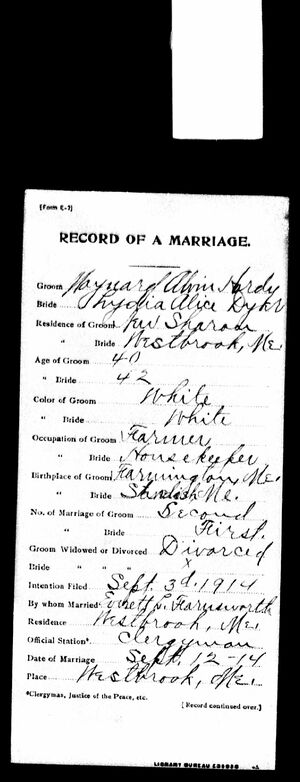 [Form E-7]
RECORD OF A MARRIAGE.
Groom Maynard Alvin Hardy
Bride Lydia Alice Dyker
Residence of Groom New Sharon
" Bride Westbrook, Me.
Age of Groom 40
" Bride 42
Color of Groom White
" Bride White
Occupation of Groom Farmer
" Bride Housekeeper
Birthplace of Groom Farmington, Me.
" Bride Standish Me.
No. of Marriage of Groom Second
" Bride First.
Groom Widowed or Divorced Divorced
Bride " " " x
Intention Filed Sept. 3d, 1914
By whom Married Everett L. Farnsworth
Residence Westbrook, Me.
Official Station*. Clergyman
Date of Marriage Sept. 12-14
Place Westbrook, Me.
*Clergymas, Justice of the Peace, etc.
[Record continued over.]
LIBRARY BUREAU